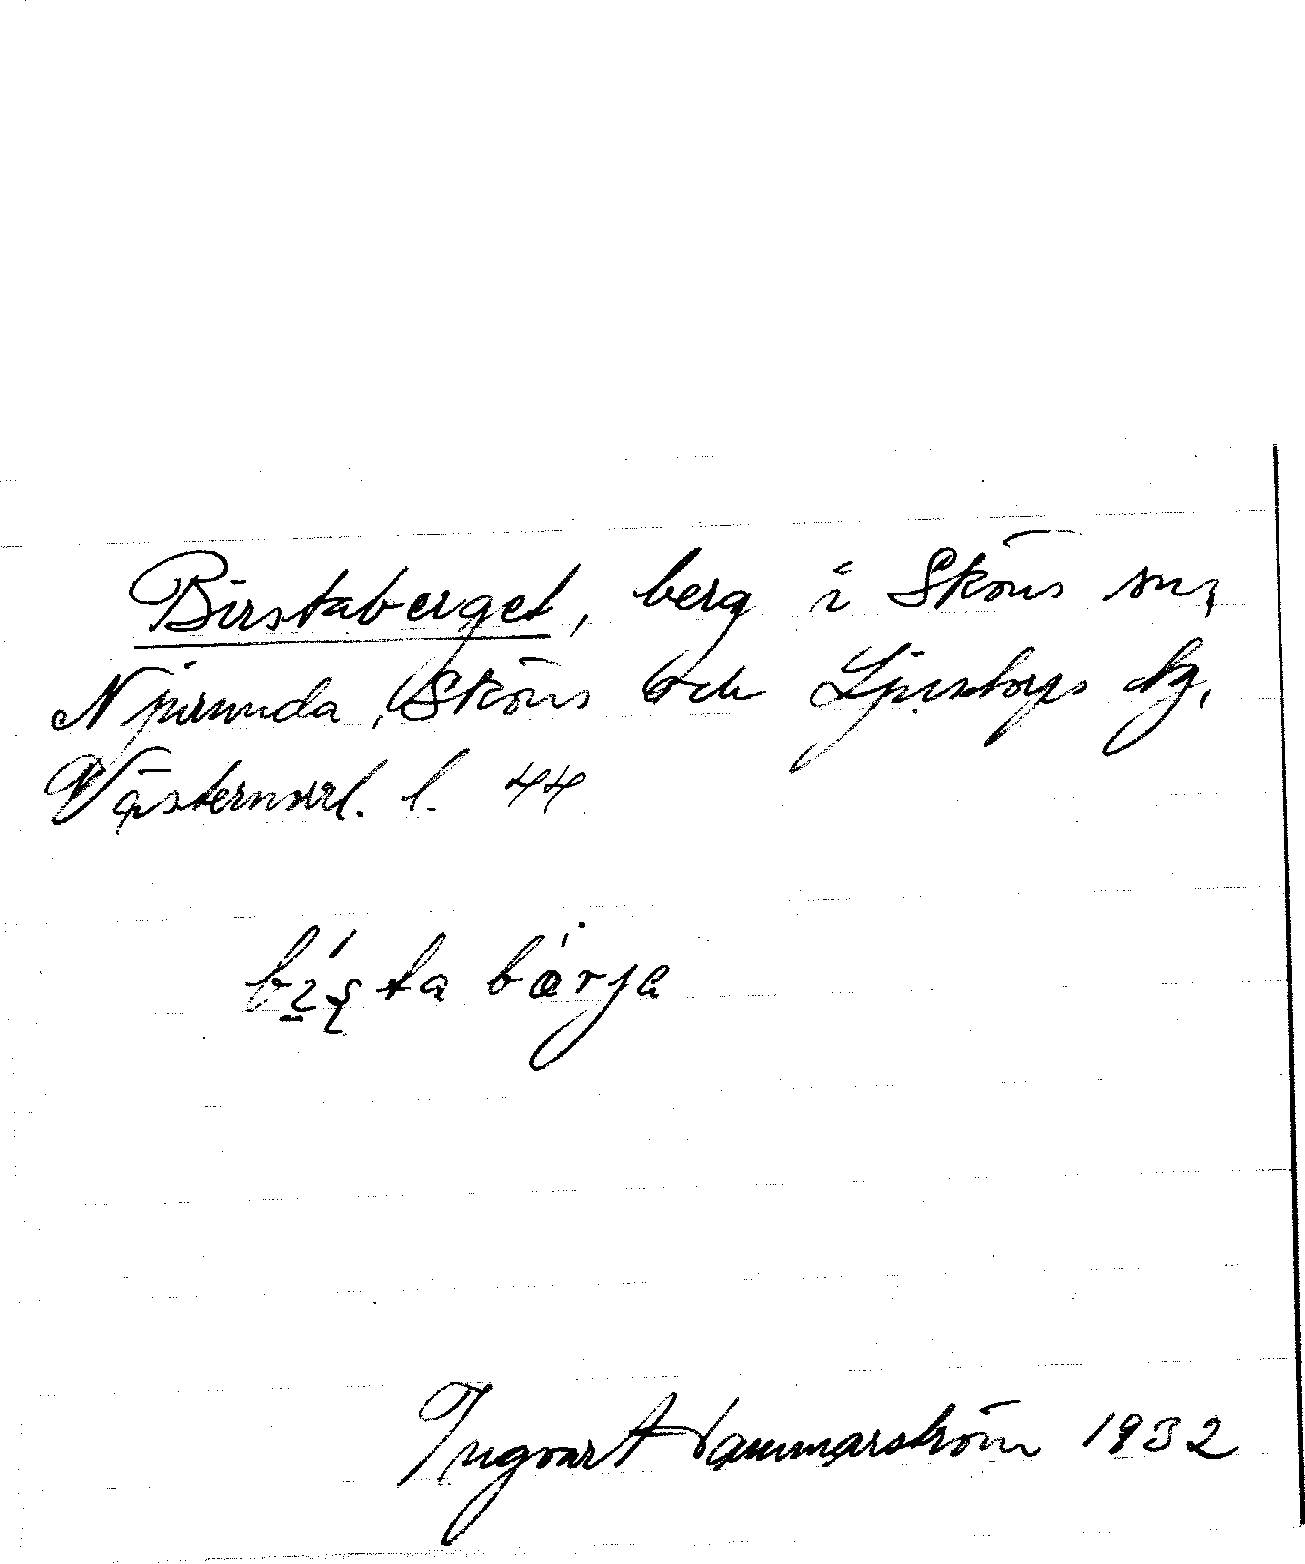 Birstaberget, berg i Sköns sn,
Njurunda, Sköns och Ljustorps tg,
Västernorrl. l. 44
bı̱́ʂta bàrja
Ingvart Hammarström 1932